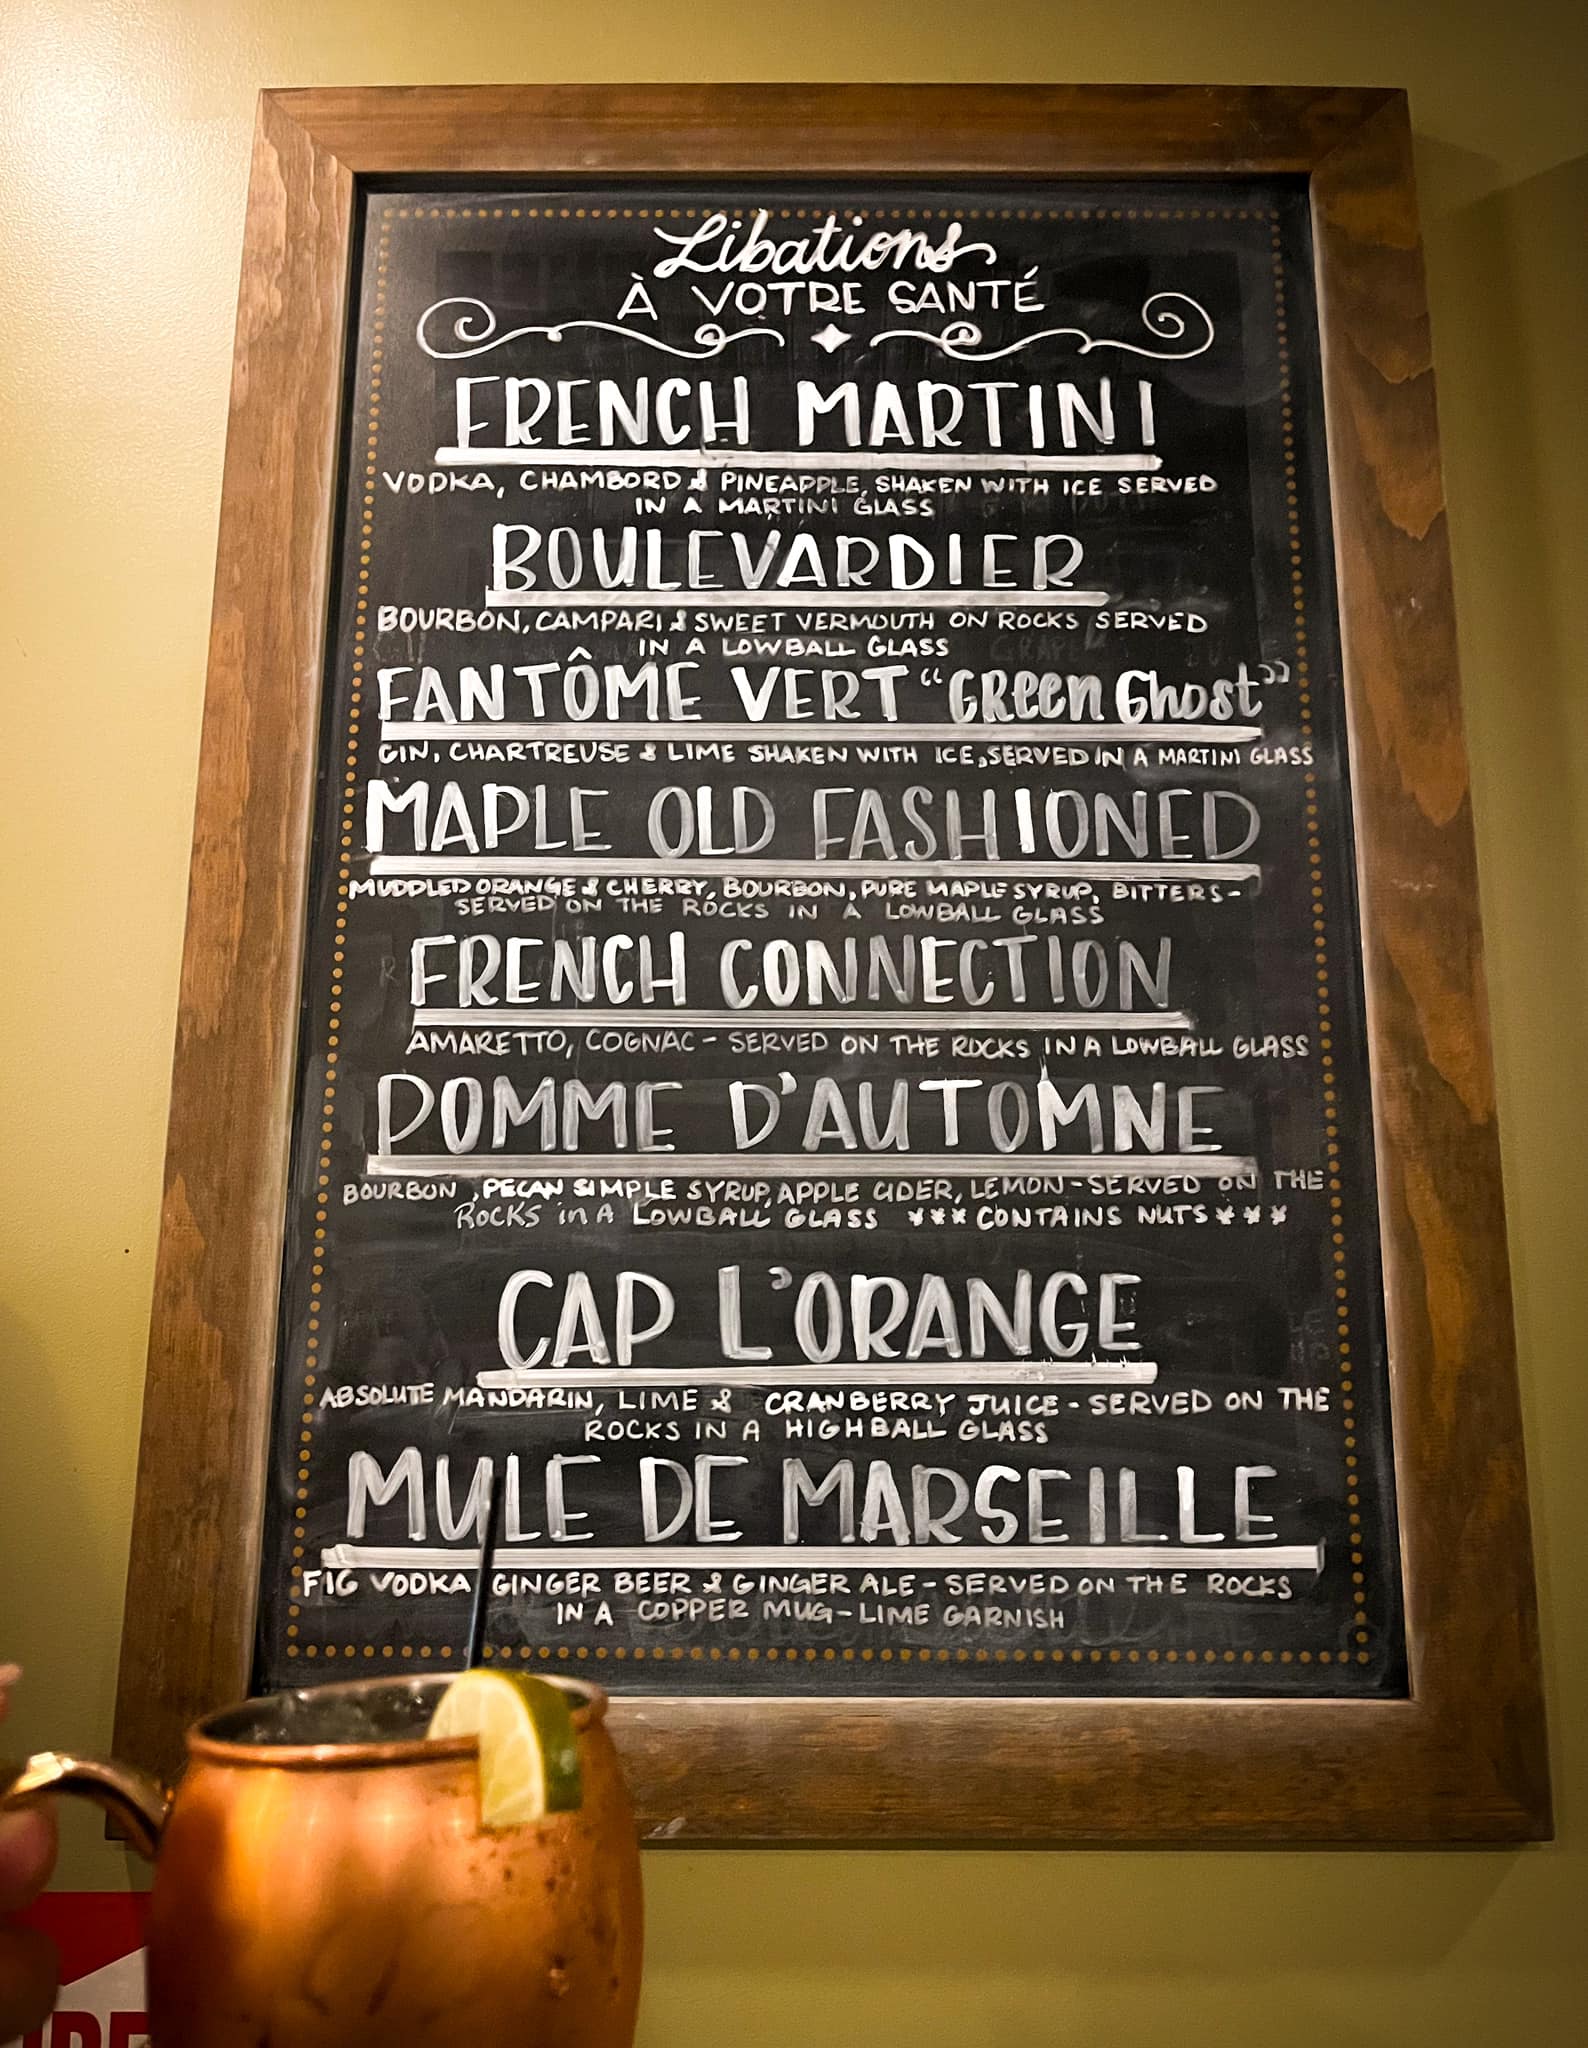 Libations
À VOTRE SANTÉ
FRENCH MARTINI
VODKA, CHAMBORD & PINEAPPLE, SHAKEN WITH ICE SERVED
IN A MARTINI GLASS
BOULEVARDIER
BOURBON, CAMPARI & SWEET VERMOUTH ON ROCKS SERVED
IN A LOWBALL GLASS
FANTÔME VERT "GReen Ghost"
GIN, CHARTREUSE & LIME SHAKEN WITH ICE, SERVED IN A MARTINI GLASS
MAPLE OLD FASHIONED
MUDDLED ORANGE & CHERRY, BOURBON, PURE MAPLE SYRUP, BITTERS-
SERVED ON THE ROCKS IN A LOWBALL GLASS
FRENCH CONNECTION
AMARETTO, COGNAC - SERVED ON THE ROCKS IN A LOWBALL GLASS
POMME D'AUTOMNE
BOURBON, PECAN SIMPLE SYRUP, APPLE CIDER, LEMON - SERVED ON THE
ROCKS in A LOWBALL GLASS *** CONTAINS NUTS ***
CAP L'ORANGE
ABSOLUTE MANDARIN, LIME & CRANBERRY JUICE - SERVED ON THE
ROCKS IN A HIGHBALL GLASS
MULE DE MARSEILLE
FIG VODKA GINGER BEER & GINGER ALE - SERVED ON THE ROCKS
IN A COPPER MUG - LIME GARNISH